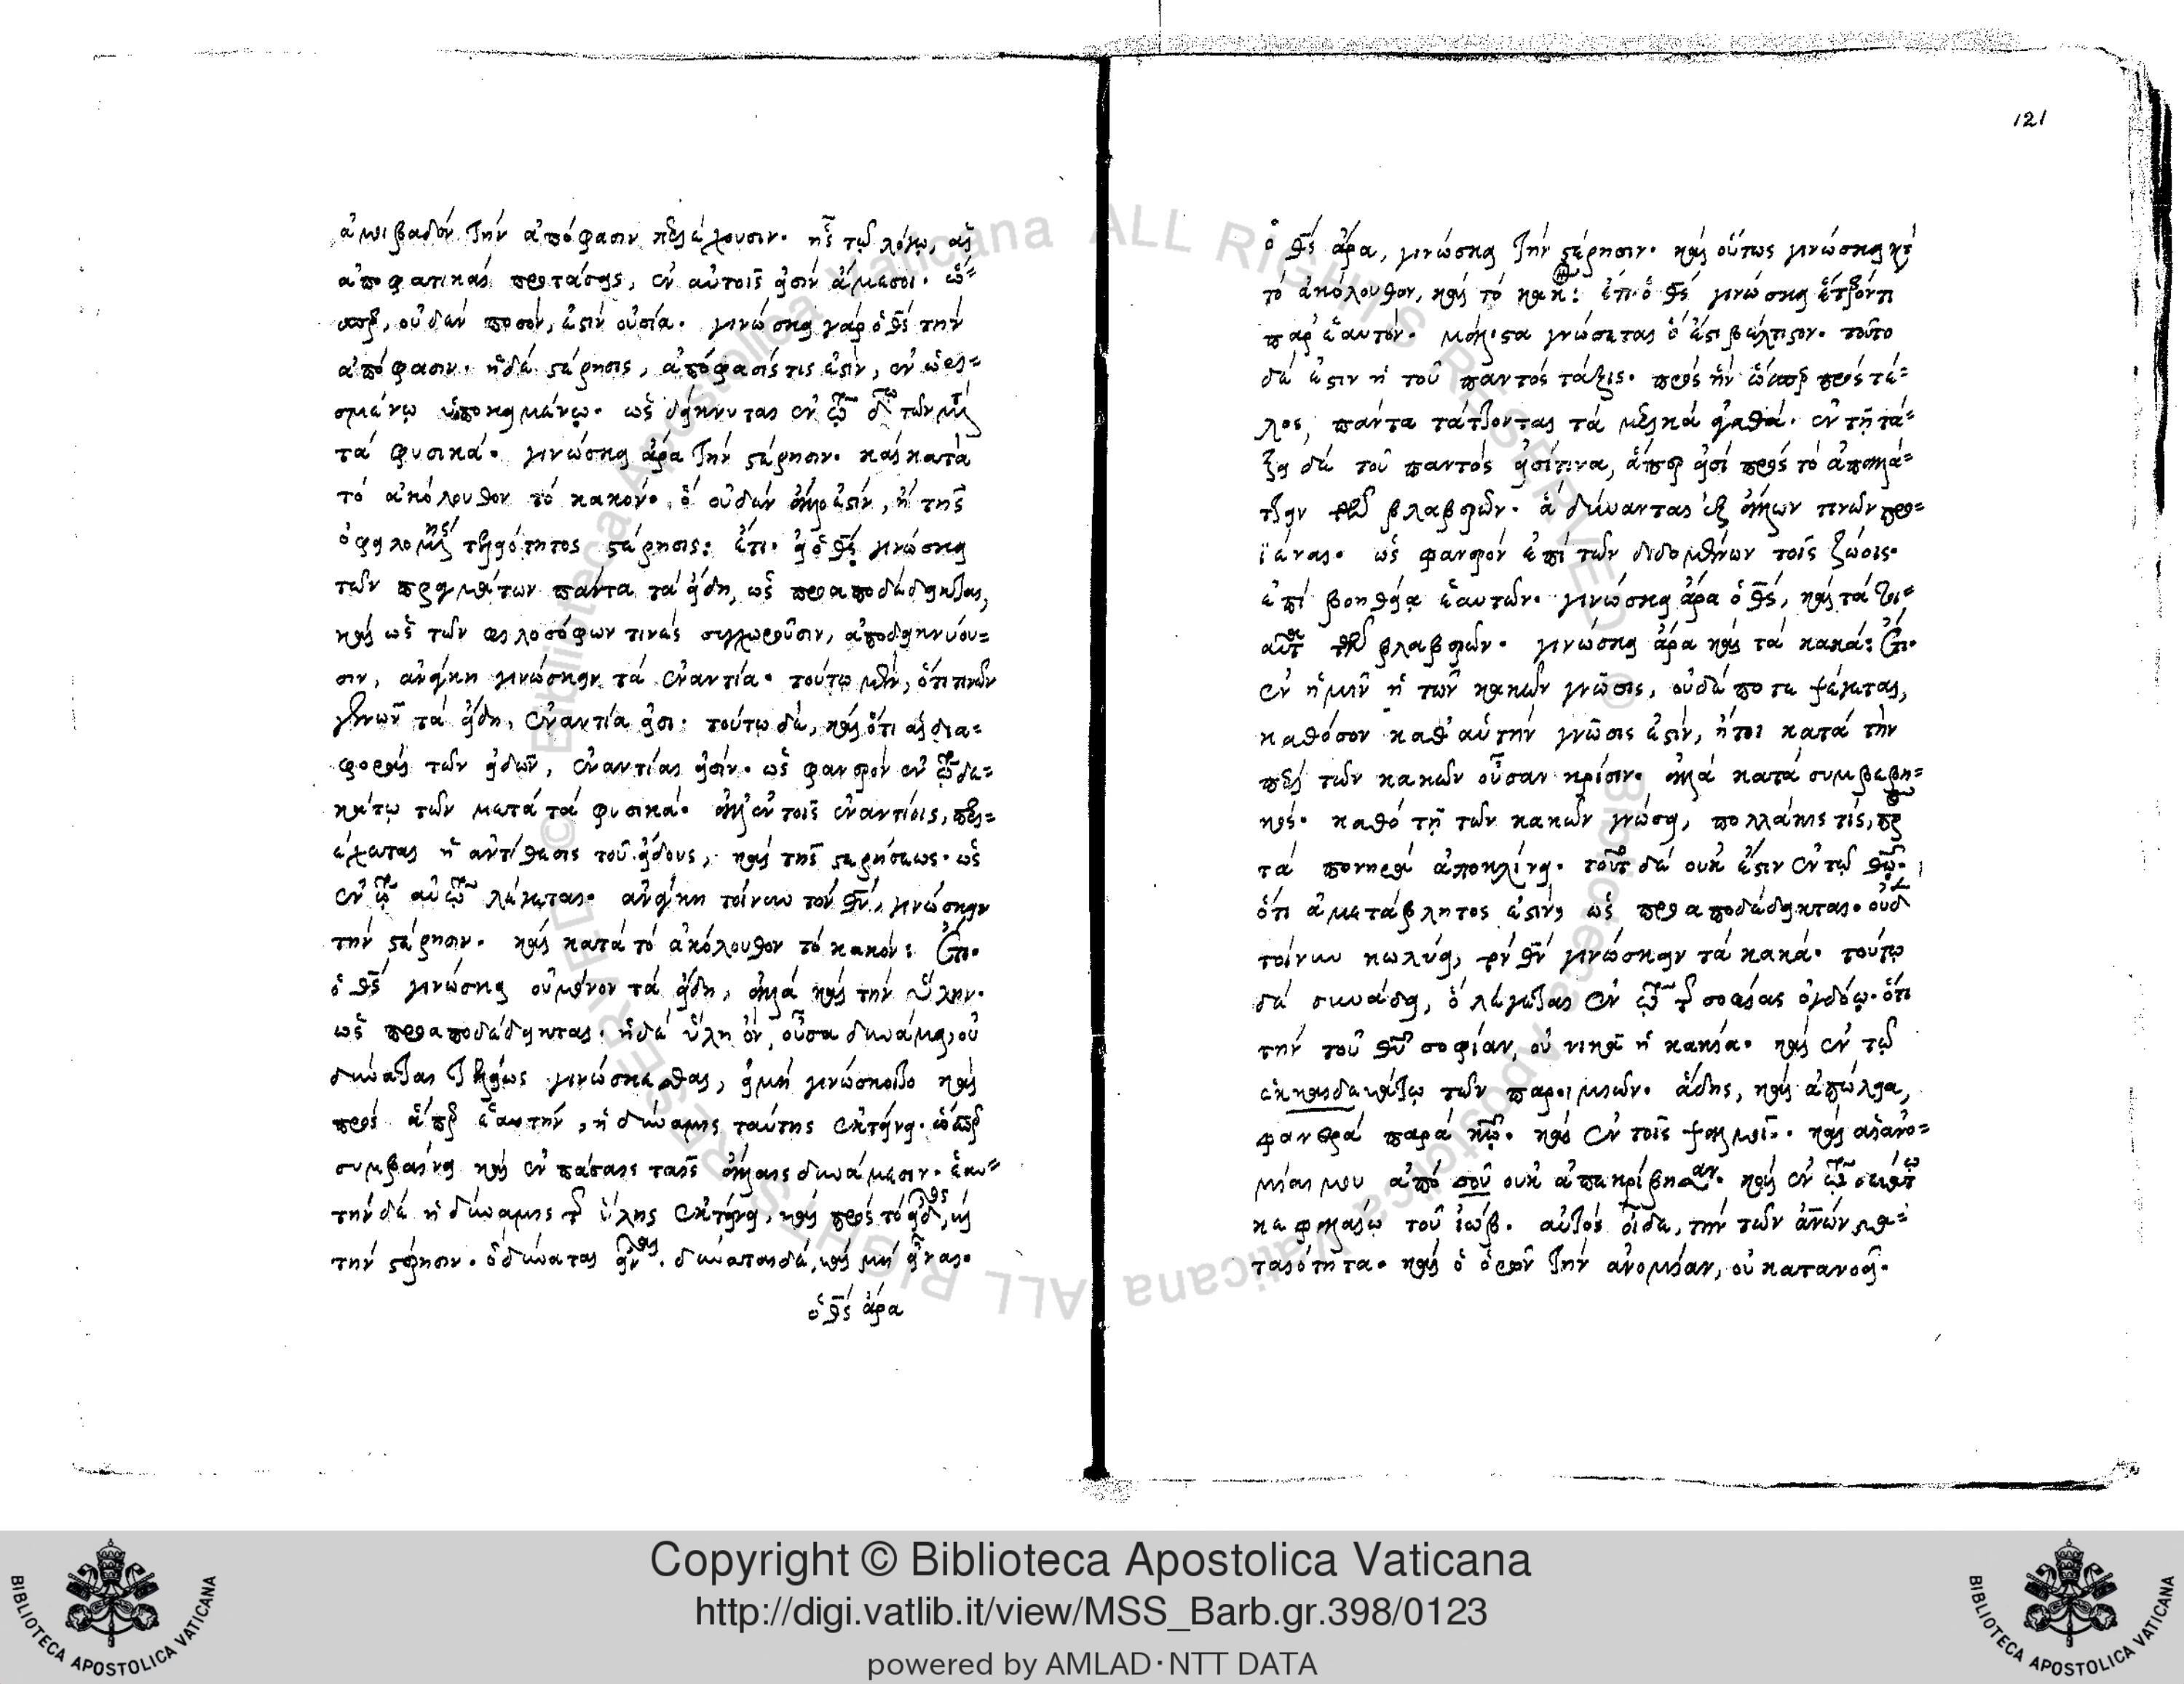 ἀμιβαδόν τὴν ἀπόφασιν περιέχουσιν. ἧς τῷ λόγῳ, αἱ
ἀποφατικαὶ προτάσεις, ἐν αὐτοῖς εἰσὶν ἄμεσοι. ὥσ=
περ, οὐδὲν ποσόν, ἐστὶν οὐσία. γινώσκει γὰρ ὁ θς τὴν
ἀπόφασιν. ἡ δὲ στέρησις, ἀπόφασίς τις ἐστὶν, ἐν ὡρι=
σμένῳ ὑποκειμένῳ. ὡς δείκνυται ἐν τῷ δῳ τῶν μετὰ
τὰ φυσικά. γινώσκει ἄρα τὴν στέρησιν. καὶ κατὰ
τὸ ἀκόλουθον τὸ κακόν. ὃ οὐδὲν ἄλλο ἐστὶν, ἢ τῆς
ὀφειλομένης τελειότητος στέρησις: ἔτι. εἰ ὁ θς γινώσκει
τῶν πραγμάτων πάντα τὰ εἴδη, ὡς προαποδέδεικται,
καὶ ὡς τῶν φιλοσόφων τινὲς συγχωροῦσιν, ἀποδεικνύου=
σιν, ἀνάγκη γινώσκειν τὰ ἐναντία. τούτῳ μὲν, ὅτι τινῶν
γενῶν τὰ εἴδη, ἐναντία εἰσι: τούτῳ δὲ, καὶ ὅτι αἱ δια=
φοραὶ τῶν εἰδῶν, ἐναντίαι εἰσίν. ὡς φανερὸν ἐν τῷ δε=
κάτῳ τῶν μετὰ τὰ φυσικά. ἀλλ' ἐν τοῖς ἐναντίοις, περι=
έχεται ἡ ἀντίθεσις τοῦ εἴδους, καὶ τῆς στερήσεως. ὡς
ἐν τῷ αὐτῷ λέγεται. ἀνάγκη τοίνυν τὸν θν, γινώσκειν
τὴν στέρησιν. καὶ κατὰ τὸ ἀκόλουθον τὸ κακόν: Ἔτι.
ὁ θς γινώσκει οὐ μόνον τὰ εἴδη, ἀλλὰ καὶ τὴν ὕλην.
ὡς προαποδέδεικται. ἡ δὲ ὕλη ὂν, οὖσα δυνάμει, οὐ
δύναται τελείως γινώσκεσθαι, εἰ μὴ γινώσκοιτο καὶ
πρὸς ἅπερ ἑαυτὴν, ἡ δύναμις ταύτης ἐκτείνει. ὥσπερ
συμβαίνει καὶ ἐν πάσαις ταῖς ἄλλαις δυνάμεσιν. ἑαυ=
τὴν δὲ ἡ δύναμις τῆς ὕλης ἐκτείνει, καὶ πρὸς τὸ εἶδος, καὶ
τὴν στέρησιν. ὃ δύναται εἶναι. δύναται δὲ, καὶ μὴ εἶναι.
ὁ θς ἄρα
121
ὁ θς ἄρα, γινώσκει τὴν στέρησιν. καὶ οὕτως γινώσκει κατὰ
τὸ ἀκόλουθον, καὶ τὸ κακόν: ἔτι. ὁ θς γινώσκει ἕτερόν τι
παρ' ἑαυτόν. μάλιστα γνώσεται ὅ ἐστι βέλτιστον. τοῦτο
δέ ἐστιν ἡ τοῦ παντὸς τάξις. πρὸς ἣν ὥσπερ πρὸς τέ=
λος, πάντα τάττονται τὰ μερικὰ ἀγαθά. ἐν τῇ τά=
ξει δὲ τοῦ παντὸς εἰσί τινα, ἅπερ εἰσὶ πρὸς τὸ ἀποσκε=
τῶν βλαβερῶν. ἃ δύνανται ἐξ ἄλλων τινῶν προ=
ϊέναι. ὡς φανερὸν ἐπὶ τῶν διδομένων τοῖς ζώοις.
ἐπὶ βοηθείᾳ ἑαυτῶν. γινώσκει ἄρα ὁ θς, καὶ τὰ τοι=
αῦτα τῶν βλαβερῶν. γινώσκει ἄρα καὶ τὰ κακά: Ἔτι.
ἐν ἡμῖν ἡ τῶν κακῶν γνῶσις, οὐδέποτε ψέγεται,
καθόσον καθ' αὑτὴν γνῶσις ἐστὶν, ἤτοι κατὰ τὴν
περὶ τῶν κακῶν οὖσαν κρίσιν. ἀλλὰ κατὰ συμβεβη=
κός. καθὸ τῇ τῶν κακῶν γνώσει, πολλάκις τίς, πρὸς
τὰ πονηρὰ ἀποκλίνει. τοῦτο δὲ οὐκ ἔστιν ἐν τῷ θῷ.
ὅτι ἀμετάβλητος ἐστὶν, ὡς προαποδέδεικται. οὐδὲν
τοίνυν κωλύει, τὸν θν γινώσκειν τὰ κακά. τούτῳ
δὲ συνᾴδει, ὃ λέγεται ἐν τῷ τῆς σοφίας ὀγδόῳ. ὅτι
τὴν τοῦ θῦ σοφίαν, οὐ νικᾷ ἡ κακία. καὶ ἐν τῷ
ἑκκαιδεκάτῳ τῶν παροιμιῶν. ᾅδης, καὶ ἀπώλεια,
φανερὰ παρὰ κῷ. καὶ ἐν τοῖς ψαλμοῖς. καὶ αἱ ἀνο=
μίαι μου ἀπὸ σοῦ οὐκ ἀπεκρίβησαν. καὶ ἐν τῷ
κεφαλαίῳ τοῦ ἰώβ. αὐτὸς οἶδε, τὴν τῶν ἀνῶν μα=
ταιότητα. καὶ ὁ ὁρῶν τὴν ἀνομίαν, οὐ κατανοεῖ.
Copyright © Biblioteca Apostolica Vaticana
http://digi.vatlib.it/view/MSS_Barb.gr.398/0123
powered by AMLAD·NTT DATA
BIBLIOTECA APOSTOLICA VATICANA
BIBLIOTECA APOSTOLICA VATICANA
© Biblioteca Apostolica Vaticana ALL RIGHTS RESERVED © Biblioteca Apostolica Vaticana ALL RIGHTS RESERVED